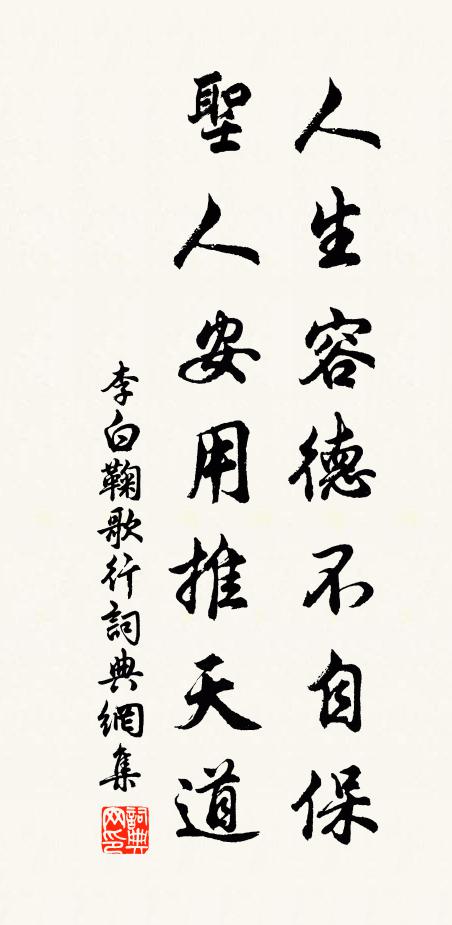 人生容德不自保
聖人安用推天道
李白鞠歌行詞典網集
詞典網印